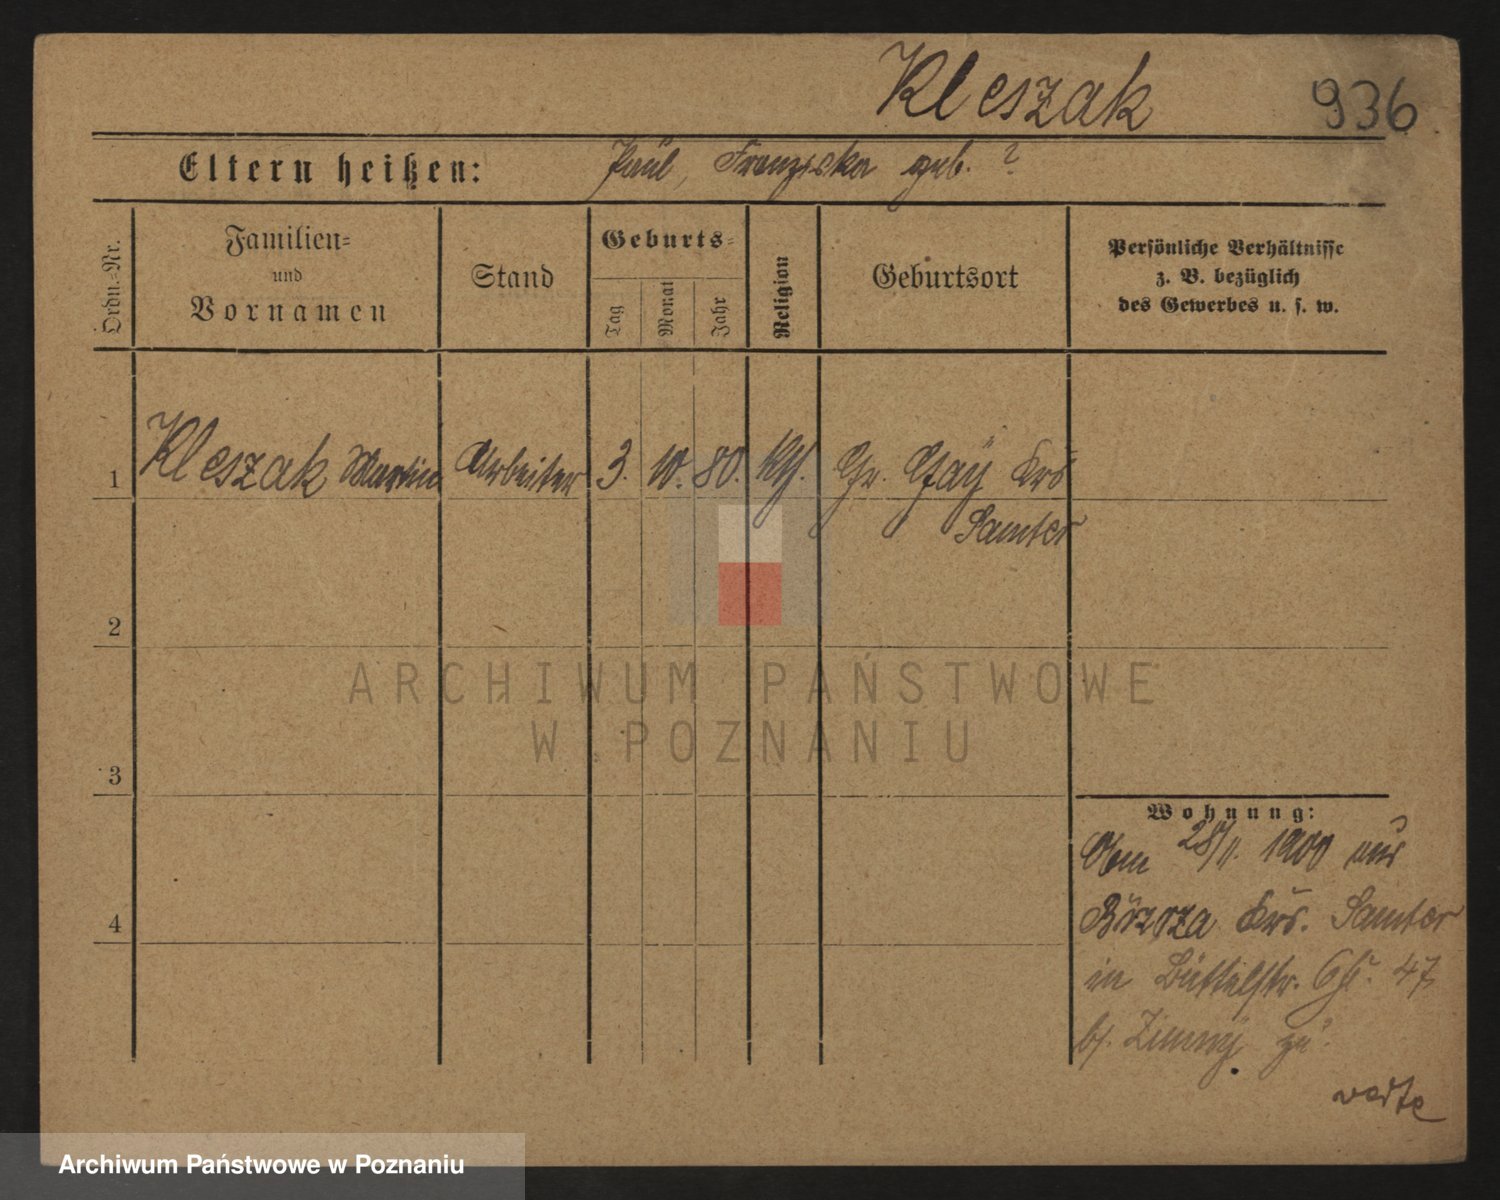 Kleszak 936
Eltern heißen: Paul, Franziska geb. ?
Ordn.-Nr.
Familien-
und
Vornamen
Stand
Geburts-
Tag
Monat
Jahr
Religion
Geburtsort
Persönliche Verhältnisse
z. B. bezüglich
des Gewerbes u. s. w.
1 Kleszak Martin Arbeiter 3. 10. 80. kth. Gr. Gay Krs
Samter
2
ARCHIWUM PAŃSTWOWE
W POZNANIU
3
Wohnung:
28/11. 1900 aus
4
Krs. Samter
in Büttelstr. 47
b/. Zimny zu.
verte
Archiwum Państwowe w Poznaniu